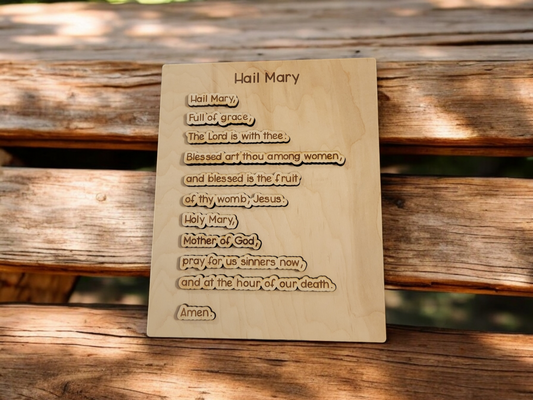 Hail Mary
Hail Mary,
Full of grace,
The Lord is with thee.
Blessed art thou among women,
and blessed is the fruit
of thy womb, Jesus.
Holy Mary,
Mother of God,
pray for us sinners now,
and at the hour of our death.
Amen.